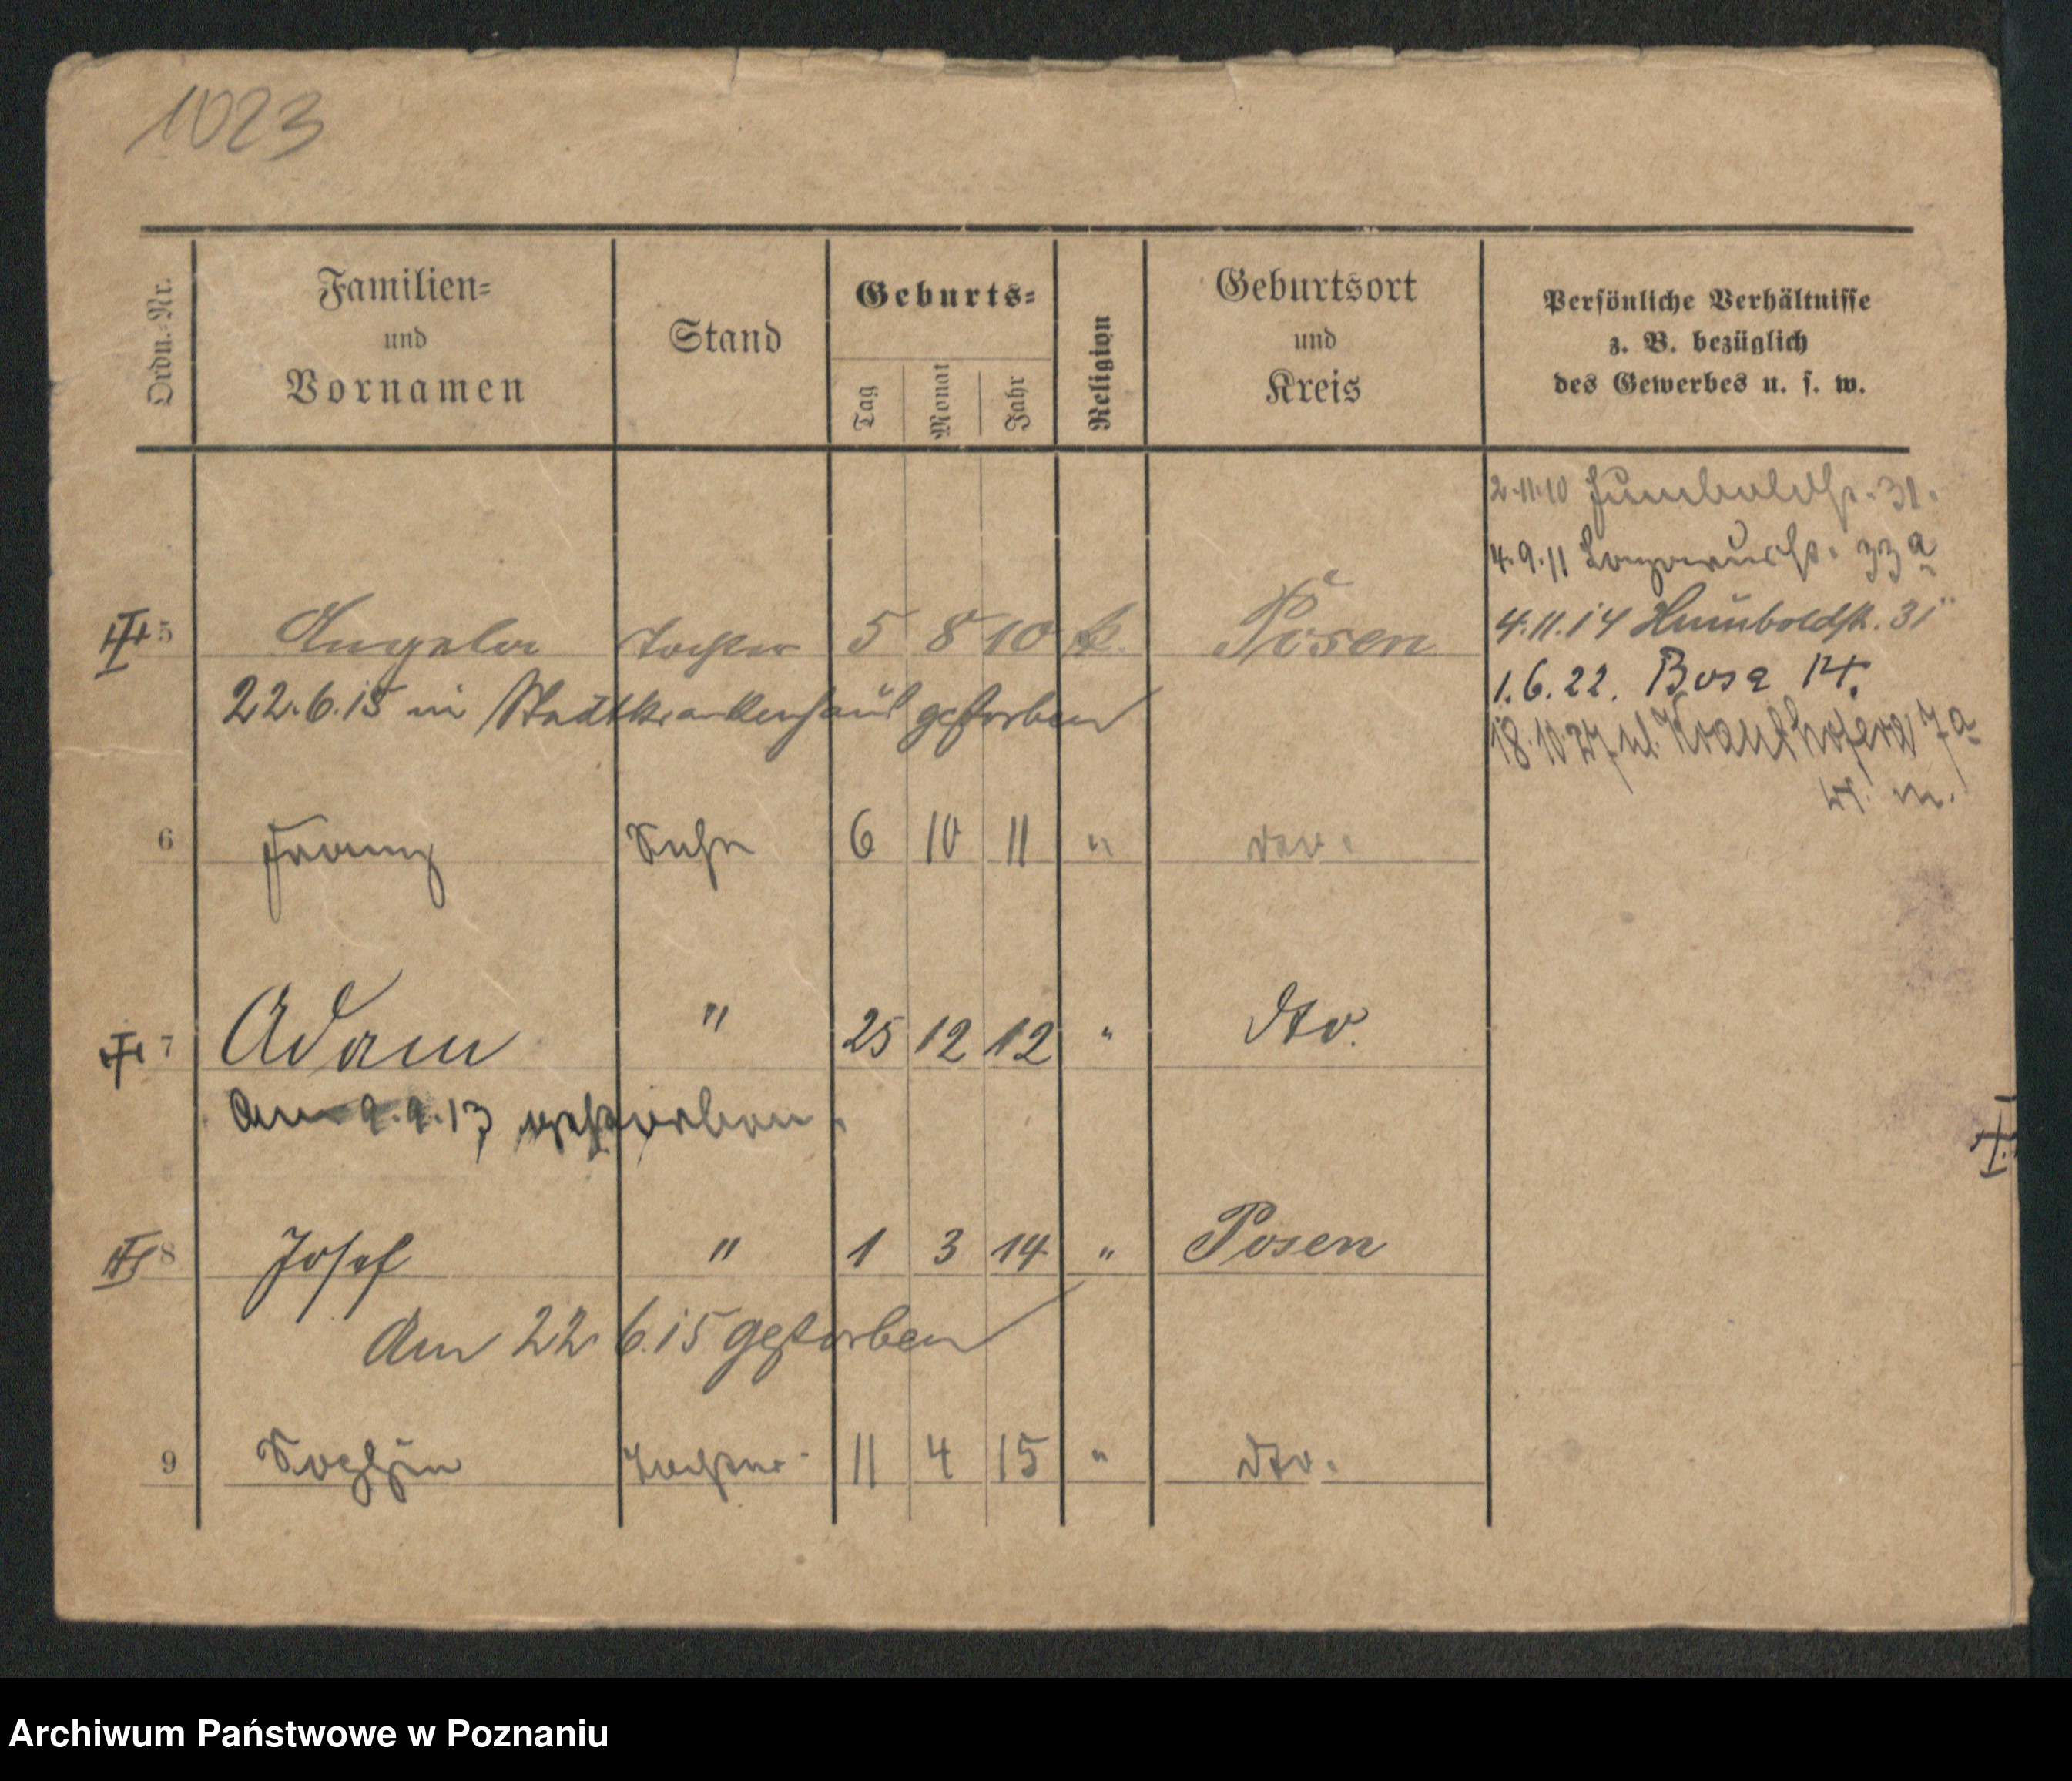 1023
Ordn.-Nr.
Familien-
und
Vornamen
Stand
Geburts-
Tag
Monat
Jahr
Religion
Geburtsort
und
Kreis
Persönliche Verhältnisse
z. B. bezüglich
des Gewerbes u. s. w.
2.11.10 Humboldtstr. 31.
4.9.11 33a
5 Angela Tochter 5 8 10 k. Posen
4.11.14 Humboldstr. 31
22.6.15 in Stadtkrankenhaus gestorben
1.6.22. Bosa 14.
18.10.27 ul. Krauthofera 7a
6 Franz Sohn 6 10 11 " dto.
7 Adam " 25 12 12 " dto.
Am 9.9.13 gestorben.
8 Josef " 1 3 14 " Posen
Am 22.6.15 gestorben
9 Tochter 11 4 15 " dto.
Archiwum Państwowe w Poznaniu